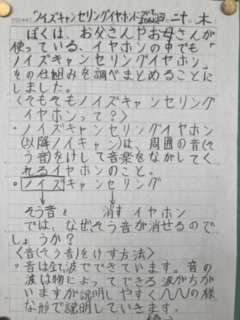 "ノイズキャンセリングイヤホン
二十 木
ぼくは、お父さんやお母さんが
使っている、イヤホンの中でも"
ノイズキャンセリングイヤホン、
をの仕組みを調べまとめることに
しました。
〈そもそもノイズキャンセリング
イヤホンって？〉
・ノイズキャンセリングイヤホン
(以降ノイキャン)は、周囲の音(そ
う音)をけして音楽をながしてく
れるイヤホンのこと。
・ノイズキャンセリング
そう音を 消す イヤホン
では、なぜそう音が消せるのでし
ょうか？
〈音(そう音)をけす方法〉
・音は全て波でできています。音の
波は物によってできる波がちが
いますが説明しやすく の様
な形で説明していきます。